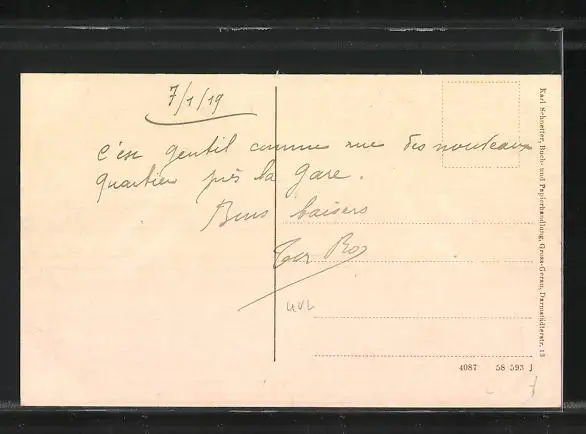 7/1/19
c'est gentil comme vue des nouveaux
quartier près la gare.
Bons baisers
4087 58 593 J
Karl Schoetter, Buch- und Papierhandlung, Gross-Gerau, Darmstädterstr. 13